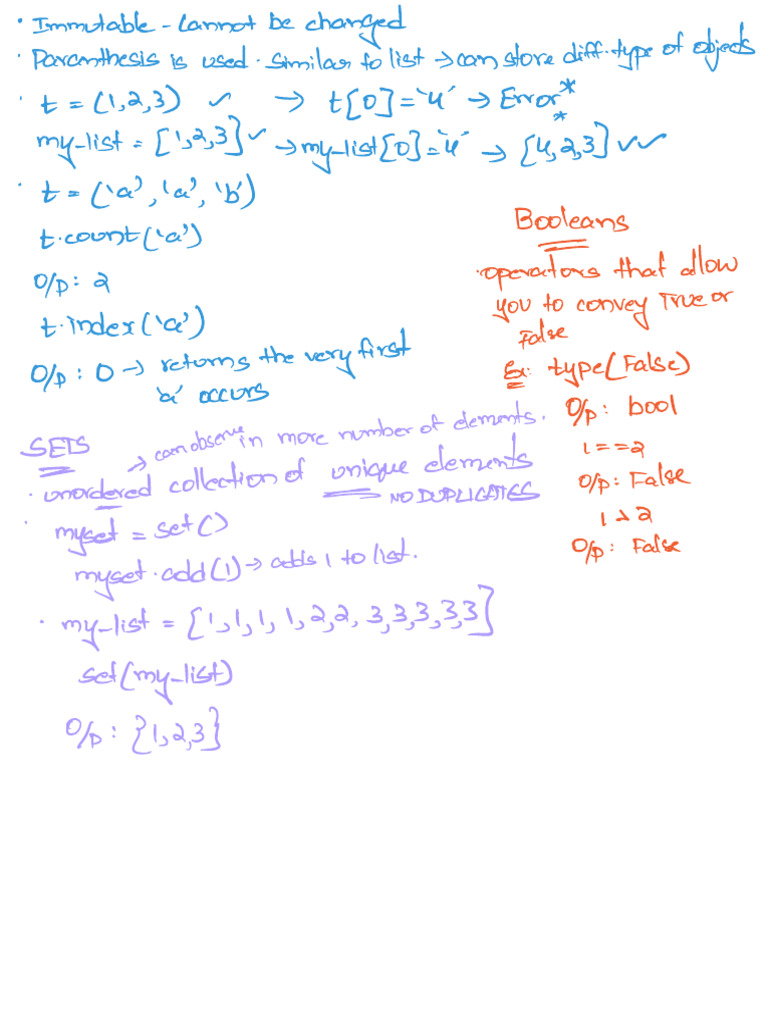 • Immutable - Cannot be changed
• Paranthesis is used. Similar to list → can store diff. type of objects
• t = (1,2,3) ✓ → t[0] = '4' → Error*
my-list = [1,2,3] ✓ → my-list[0] = '4' → [4,2,3] ✓✓
*
• t = ('a', 'a', 'b')
t.count('a')
O/p: 2
t.index('a')
O/p: 0 → returns the very first
'a' occurs
Booleans
• operators that allow
you to convey True or
False
Ex: type(False)
O/p: bool
1 == 2
O/p: False
1 > 2
O/p: False
SETS
→ can observe in more number of elements.
• unordered collection of unique elements
NO DUPLICATES
• myset = set()
myset.add(1) → adds 1 to list.
• my-list = [1,1,1,1,2,2,3,3,3,3,3]
set(my-list)
O/p: {1,2,3}